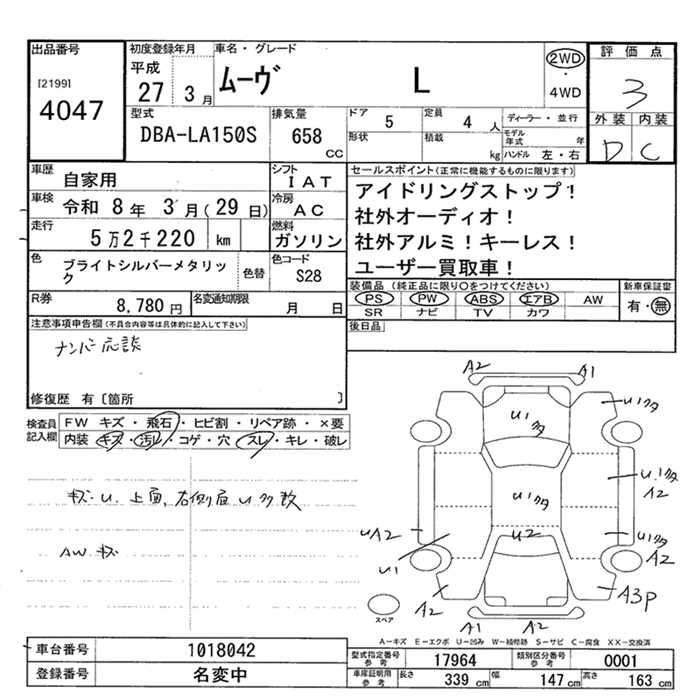 出品番号
[21991]
4047
初度登録年月
平成
27 3月
車名・グレード
ムーヴ L
2WD
・
4WD
評価点
3
外装 内装
D C
型式
DBA-LA150S
排気量
658
cc
ドア 5
定員 4 人
形状
積載 kg
ディーラー・並行
モデル年式 年
ハンドル 左・右
車歴 自家用
車検 令和 8年 3月(29日)
走行 5万2千220 km
シフト IAT
冷房 AC
燃料 ガソリン
色 ブライトシルバーメタリック
色替
色コード S28
R券 8,780円
名変通知期限 月 日
セールスポイント(正常に機能するものに限ります)
アイドリングストップ!
社外オーディオ!
社外アルミ!キーレス!
ユーザー買取車!
装備品(純正品に限り○をつけてください)
PS PW ABS エアB AW
SR ナビ TV カワ
新車保証書
有・無
後日品
注意事項申告欄(不具合内容等は具体的に記入して下さい)
ナンバー応談
修復歴 有〔箇所 〕
検査員記入欄
FW キズ・飛石・ヒビ割・リペア跡・×要
内装 キズ・汚レ・コゲ・穴・スレ・キレ・破レ
キズ・U 上面、右側面 Uタ数
AW キズ
A2
A1
U1タ
U1タ
U1タ
U1タ
A2
UA2
U2
U1タ
A2
U1
A2
A3P
A1
A2
スペア
A-キズ E-エクボ U-凹み W-補修跡 S-サビ C-腐食 XX-交換済
車台番号 1018042
登録番号 名変中
型式指定番号 参考 17964
類別区分番号 参考 0001
車庫証明用 参考 長さ 339 cm 幅 147 cm 高さ 163 cm